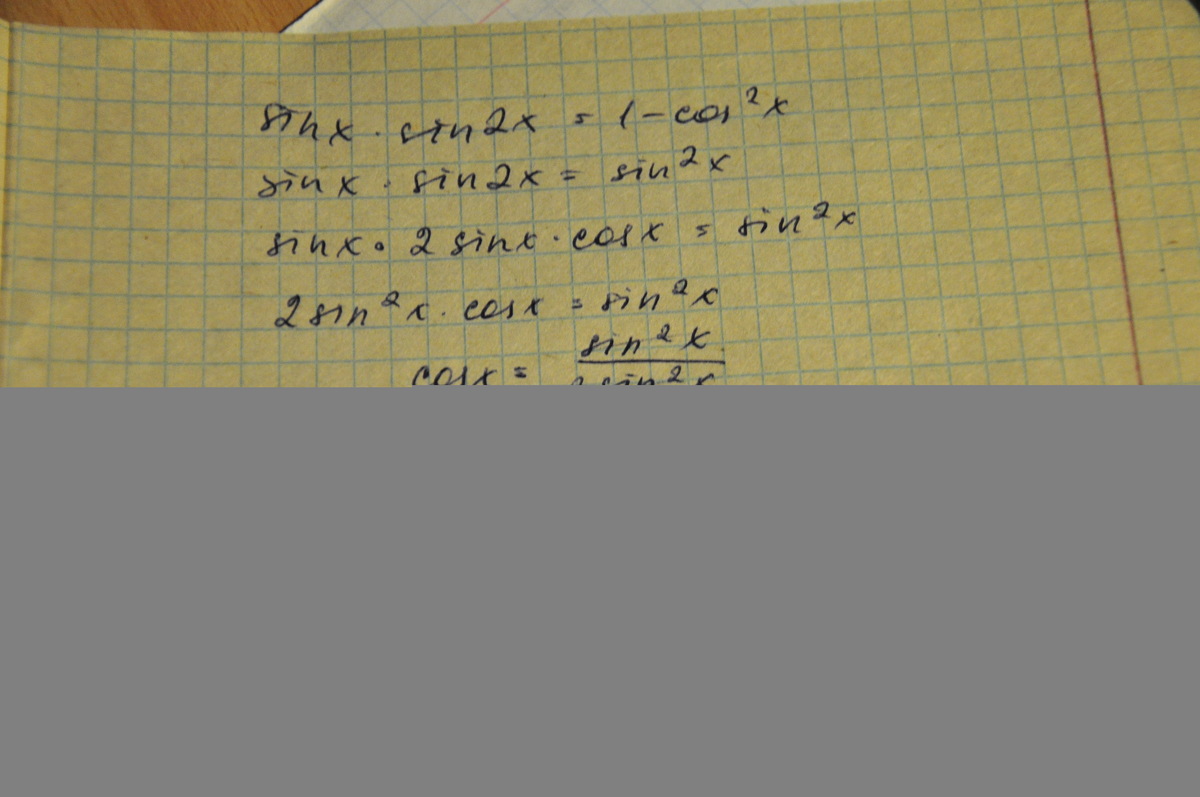 sin x · sin 2x = 1 - cos²x
sin x · sin 2x = sin²x
sin x · 2 sin x · cos x = sin²x
2 sin²x · cos x = sin²x
sin²x
cos x = sin²x